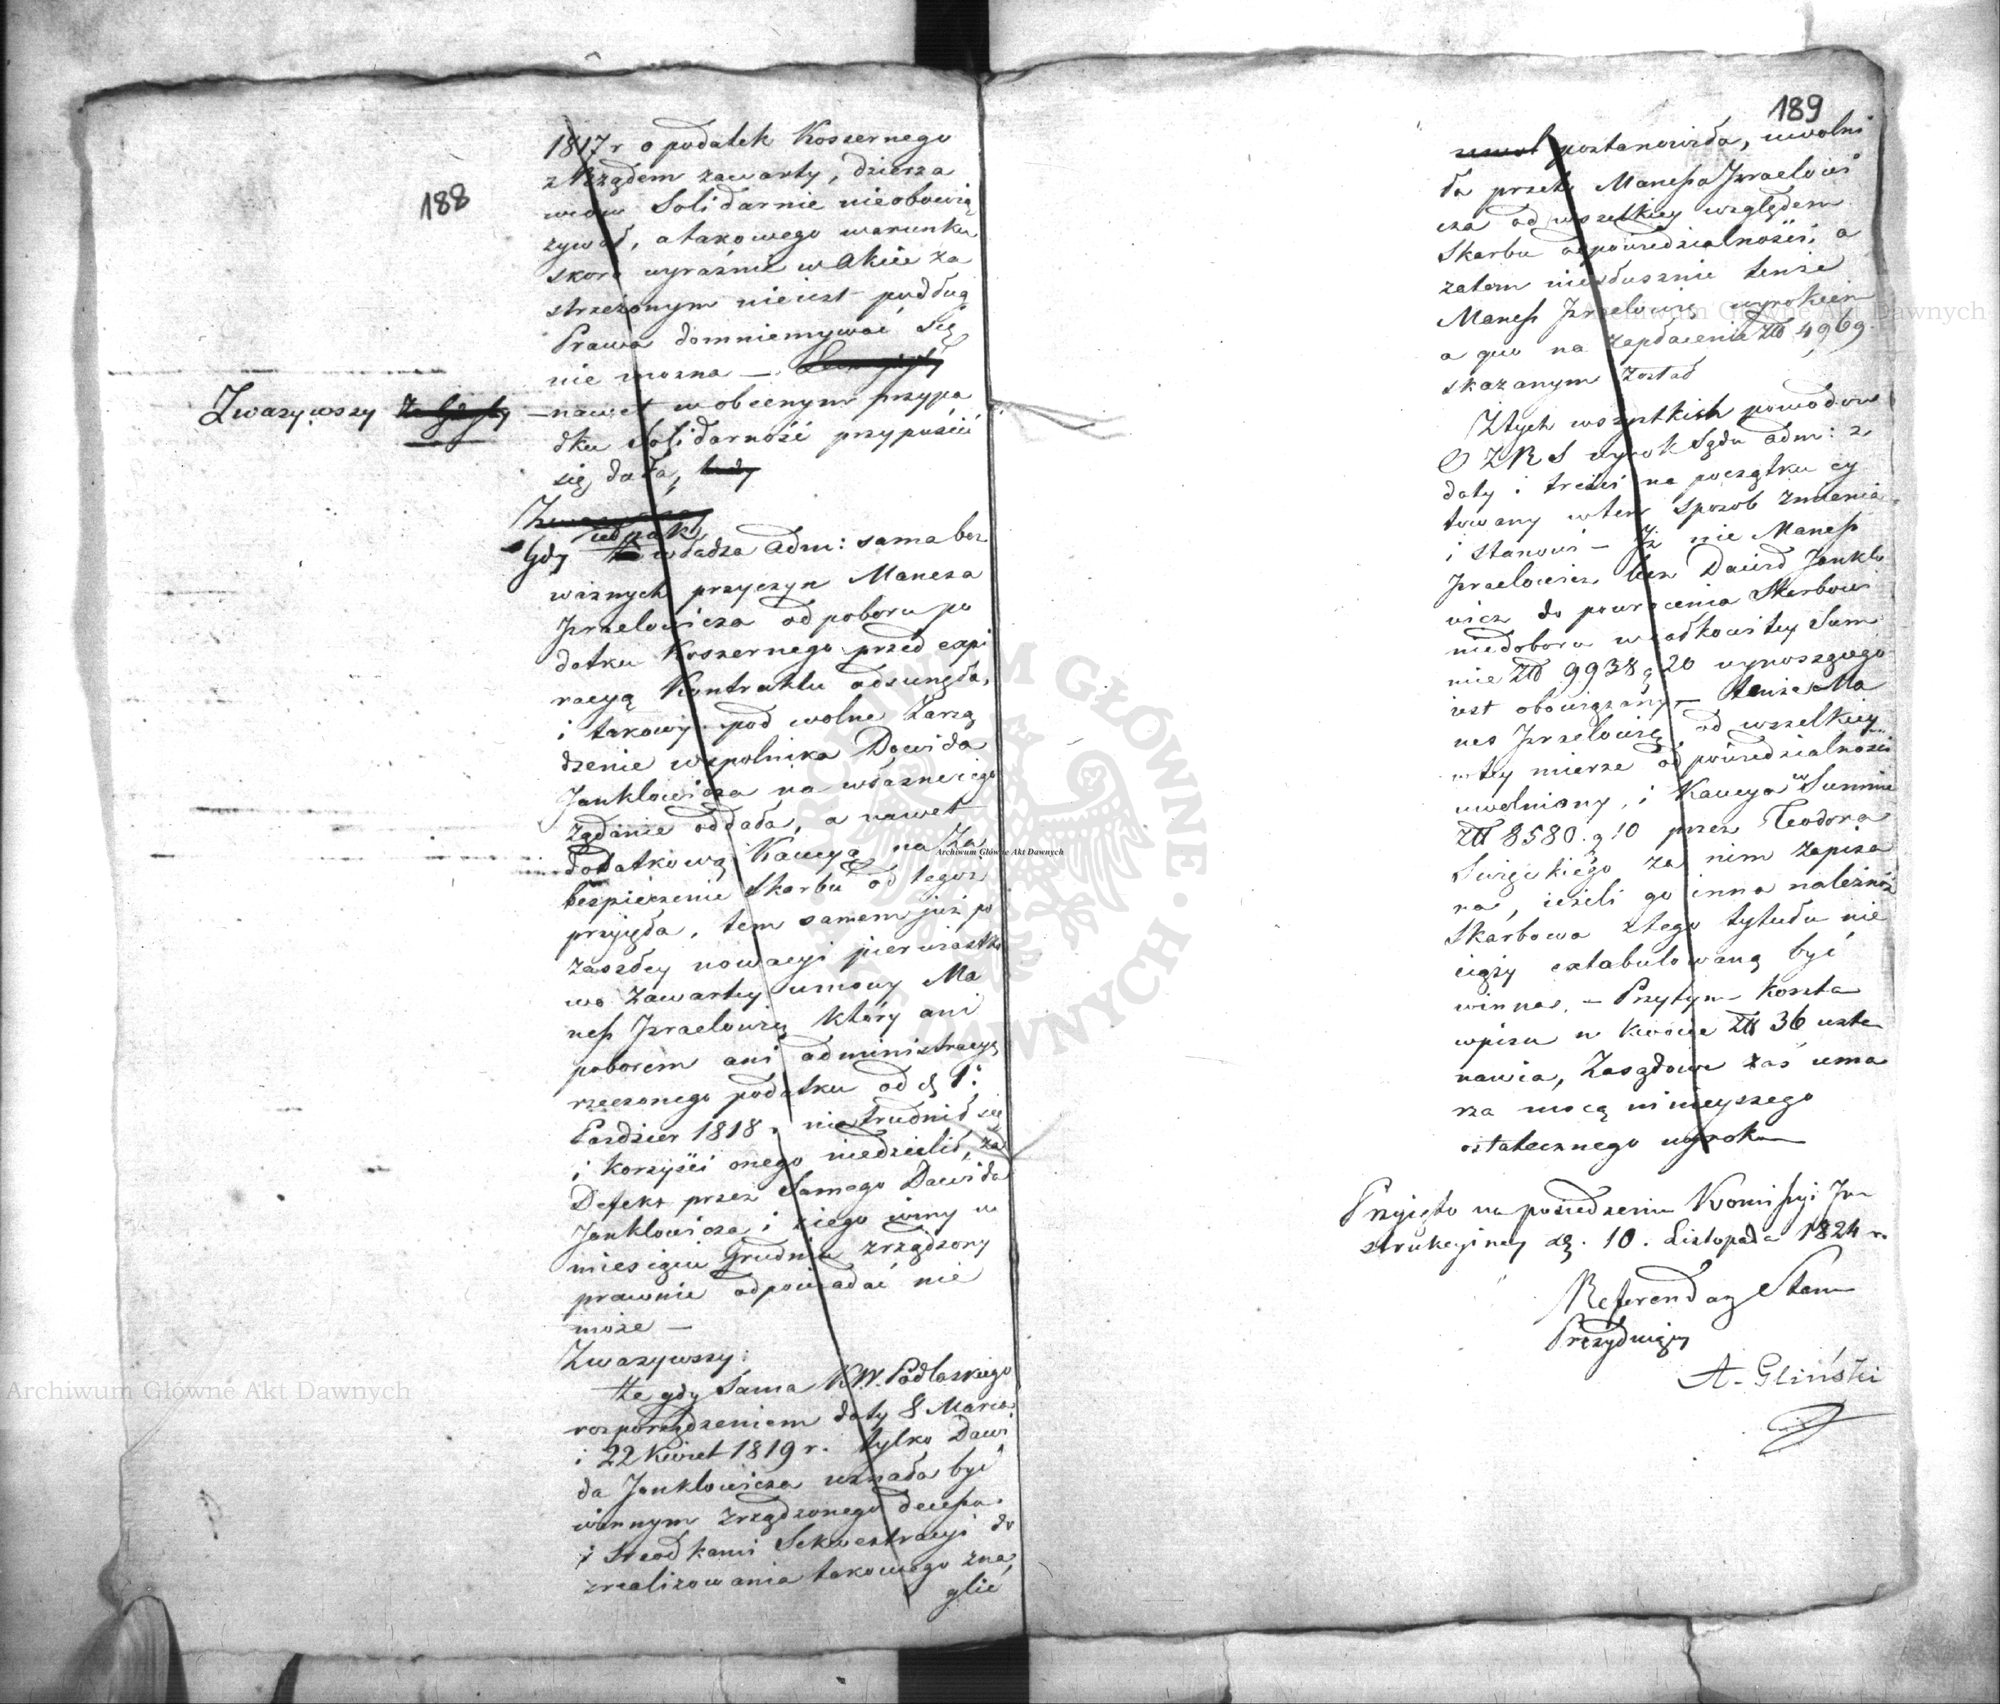 188
1817 r o podatek Koszernego
z Rządem zawarty, dzierza
wców Solidarnie nieobowią
zywał, a takowego warunku
skoro wyraźnie w Akcie za
strzeżonym nieiest podług
Prawa domniemywać się
nie można —
Zważywszy
— nawet w obecnym przypa
dku Solidarność przypuścić
się dała,
iednak
Gdy władza Adm: sama bez
ważnych przyczyn Manesa
Izraelowicza od poboru po
datku Koszernego przed expi
racyą Kontraktu odsunęła,
i takowy pod wolne Zarzą
dzenie wspolnika Dawida
Janklowicza na własne iego
żądanie oddała, a nawet
dodatkową Kaucyą na Za
bespieczenie Skarbu od tegoż
przyięła, tem samem już po
zaszłey nowacyi pierwiastko
wo zawartey umowy Ma
neß Izraelowicz który ani
poborem ani administracyą
rzeczonego podatku od d 1:
Pazdzier 1818 r nietrudnił się
i korzyści onego niedzielił, za
Defekt przez Samego Dawida
Janklowicza i z iego winy w
miesiącu Grudniu zrządzony
prawnie odpowiadać nie
może —
Zważywszy:
że gdy Sama K.W. Podlaskiego
rozporządzeniem daty 8 Marca
i 22 Kwiet 1819 r. tylko Dawi
da Janklowicza uznała być
winnym zrządzonego decessu
i środkami Sekwestracyi do
zrealizowania takowego zna
glić
189
postanowiła, uwolni
ła przeto Maneßa Izraelowi
cza od wszelkiey względem
Skarbu odpowiedzialności, a
zatem niesłusznie tenże
Maneß Izraelowicz wyrokiem
a quo na zapłacenie Złł 4969.
skazanym został
Z tych wszystkich powodow
D Z R S wyrok Sądu Adm: z
daty i treści na początku cy
towany w ten Sposob zmienia
i stanowi — Iż nie Maneß
Izraelowicz lecz Dawid Janklo
wicz do powrocenia Skarbowi
niedoboru w całkowitey Sum
mie Złł 9938 g 20 wynoszącego
iest obowiązany, — tenże Ma
nes Izraelowicz od wszelkiey
w tey mierze odpowiedzialności
uwolniony, i Kaucya w Summie
Złł 8580. g 10 przez Teodora
Suięckiego za nim zapisa
na, ieżeli go inna należność
Skarbowa z tego tytułu nie
ciąży extabulowaną być
winna. — Przytym koszta
wpisu w kwocie Złł 36 usta
nawia, Zasądowe zaś uma
rza mocą ninieyszego
ostatecznego wyroku
Przyięto na posiedzeniu Kommißyi In
strukcyiney d. 10. Listopada 1824 r.
Referendarz Stanu
Prezyduiący
A. Gliński
Archiwum Główne Akt Dawnych
Archiwum Główne Akt Dawnych
Archiwum Główne Akt Dawnych
ARCHIWUM GŁÓWNE AKT DAWNYCH